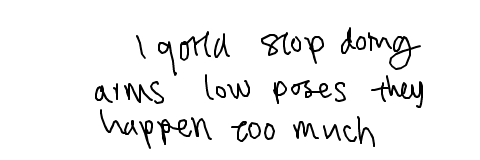 I gotta stop doing
arms low poses they
happen too much